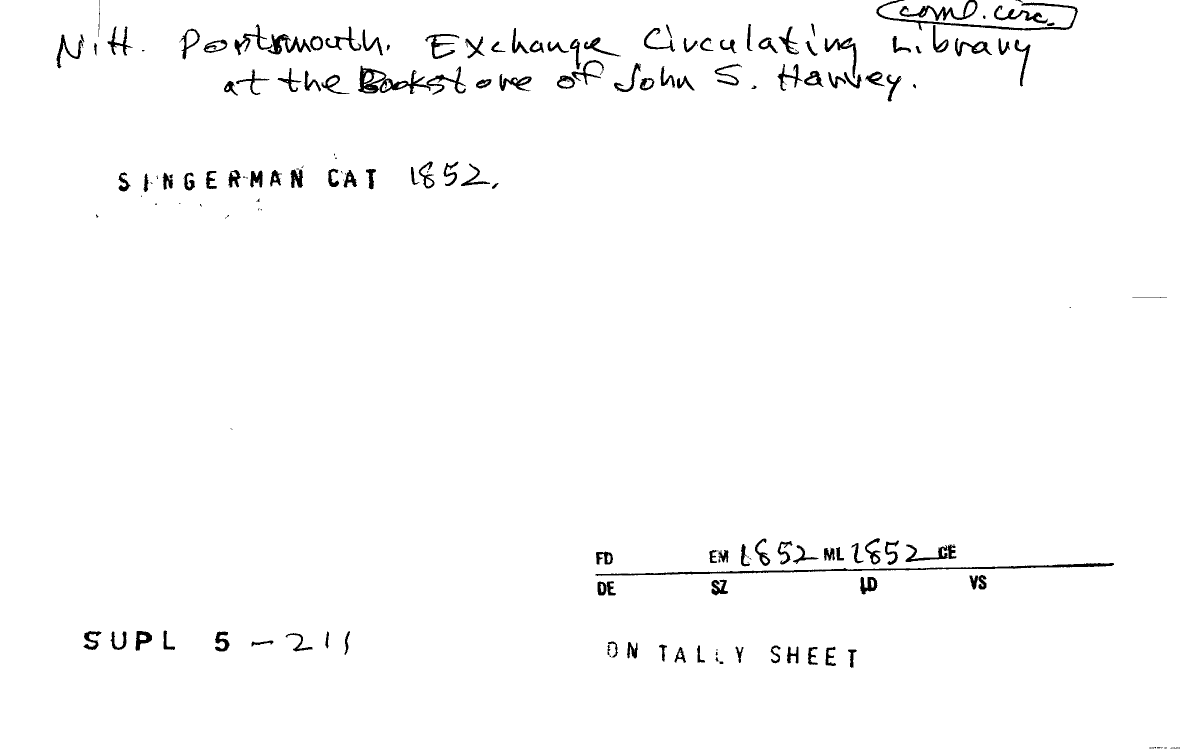 coml. circ.
N.H. Portsmouth. Exchange Circulating Library
at the Bookstore of John S. Harvey.
SINGERMAN CAT 1852.
FD EM 1852 ML 1852 CE
DE SZ LD VS
SUPL 5 - 211
ON TALLY SHEET